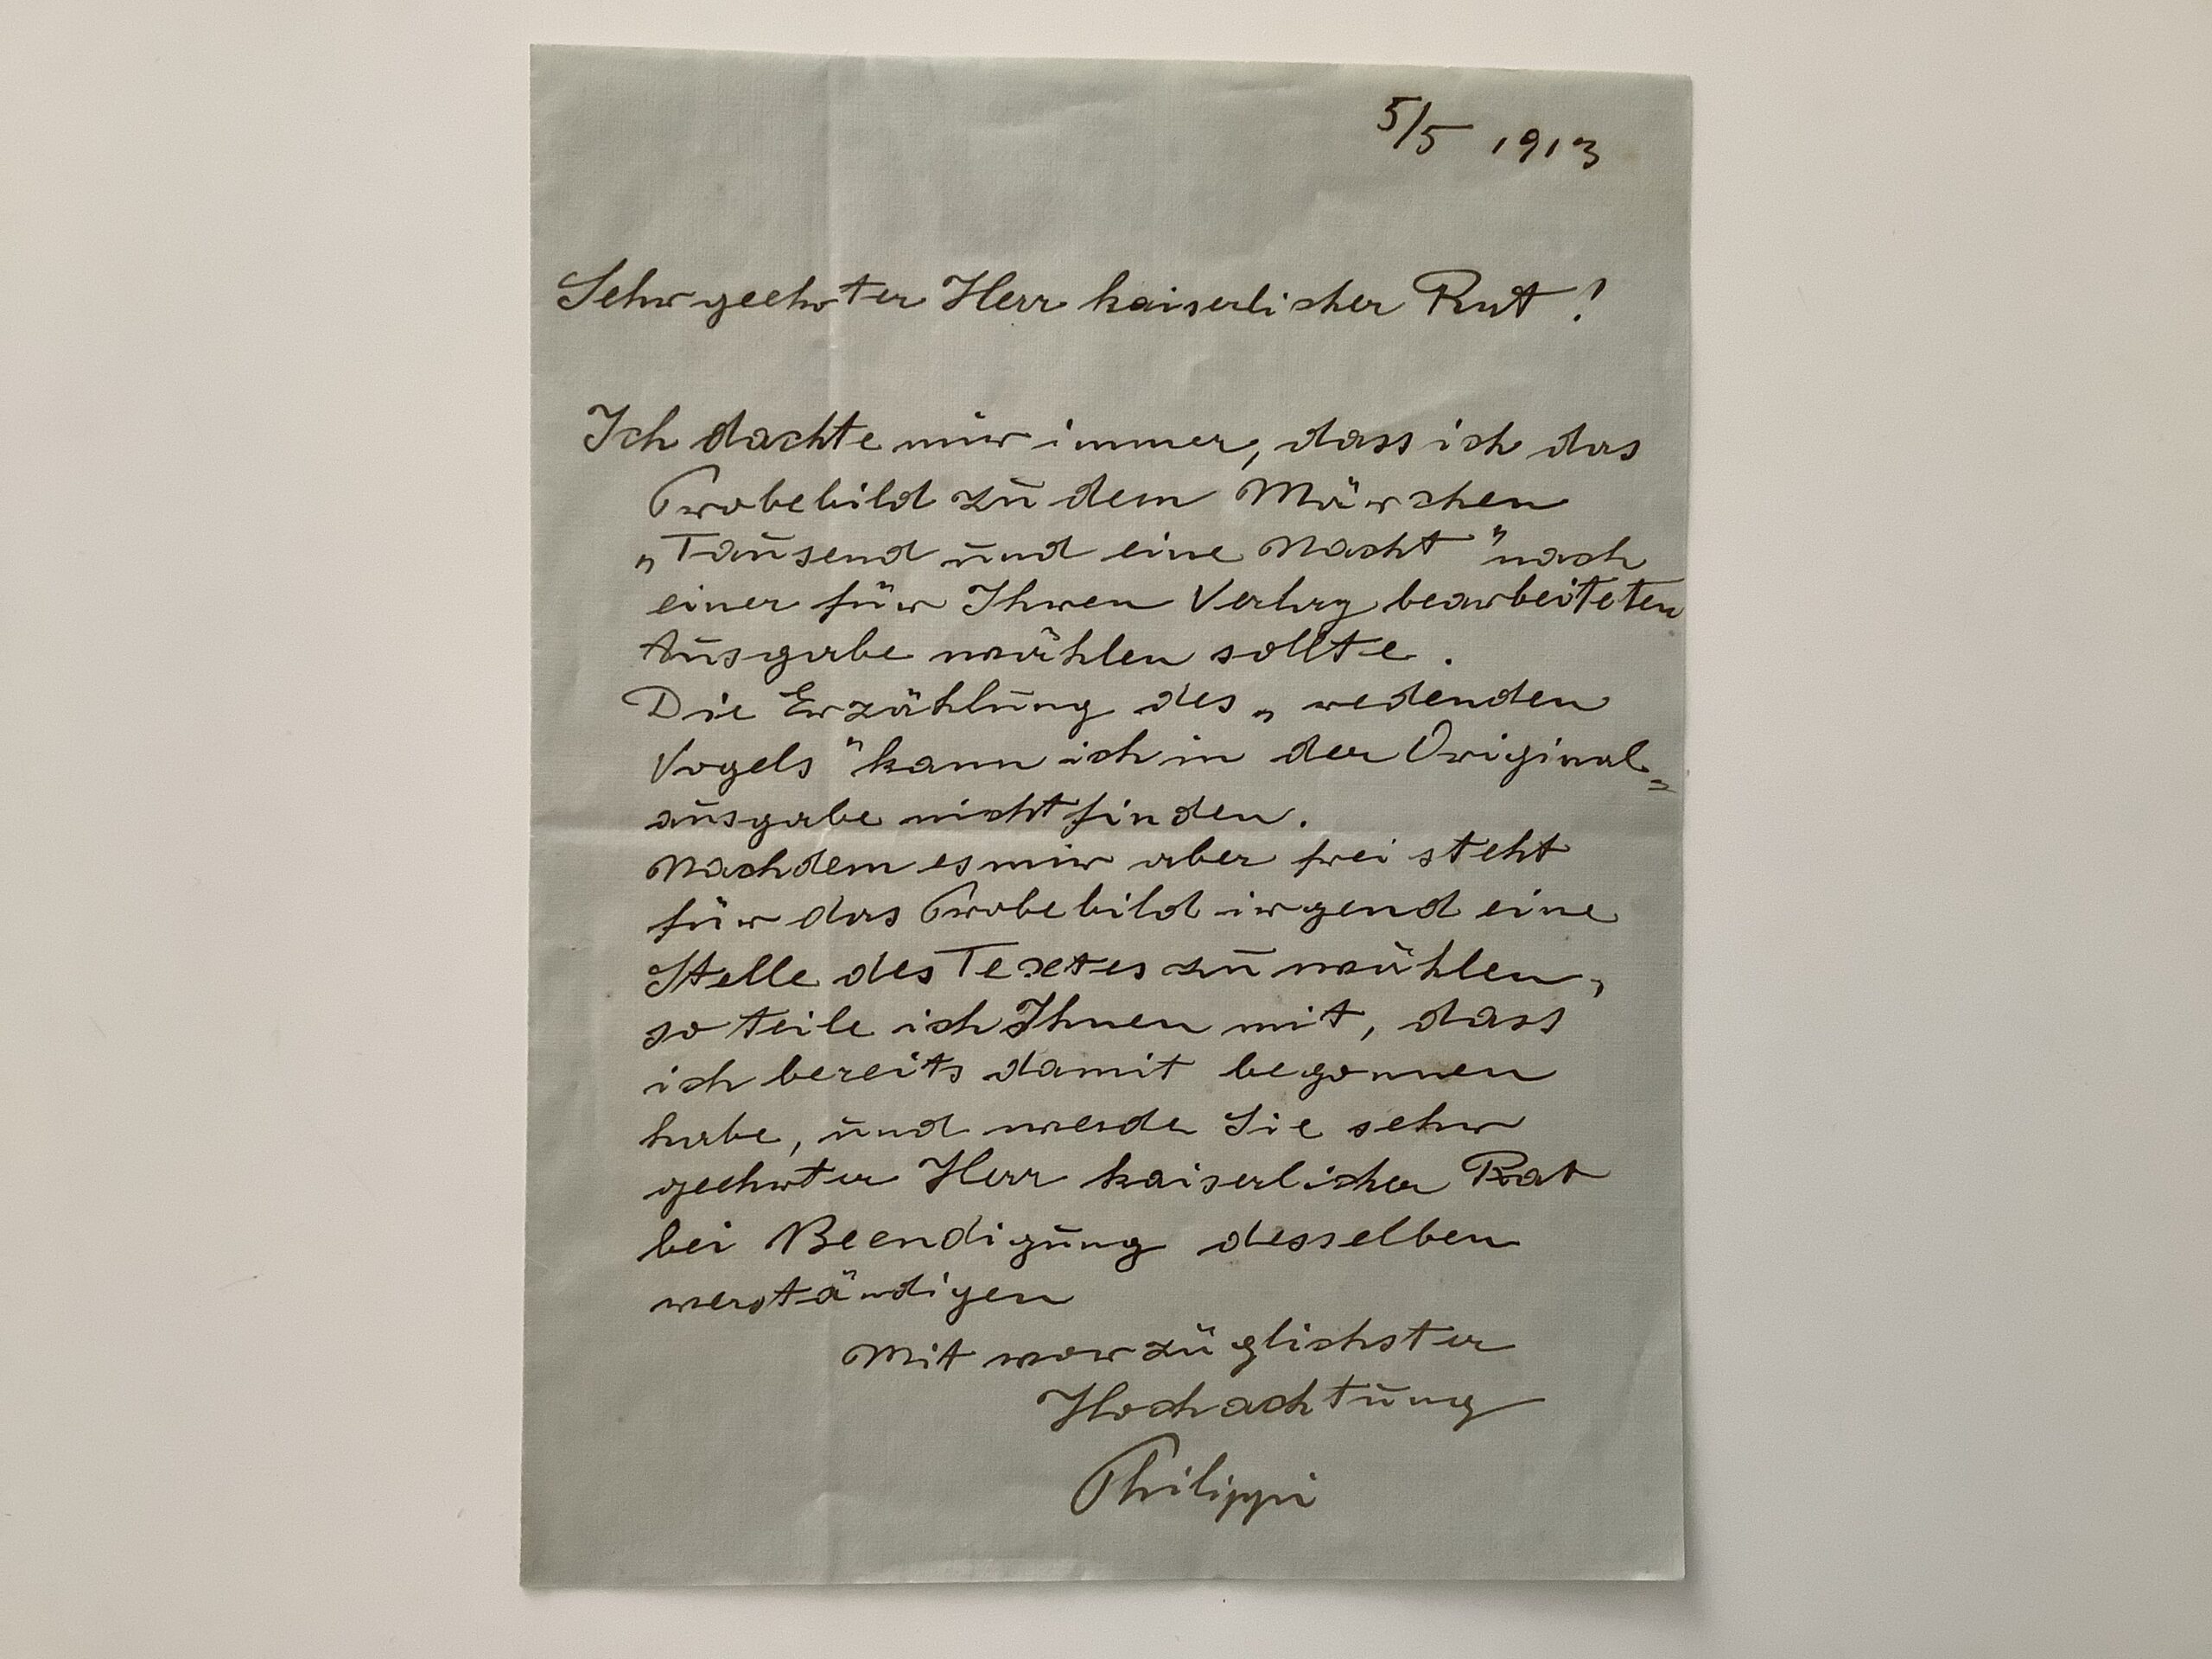 5/5 1913
Sehr geehrter Herr kaiserlicher Rat!
Ich dachte mir immer, dass ich das
Probebild zu dem Märchen
„Tausend und eine Nacht" nach
einer für Ihren Verlag bearbeiteten
Ausgabe wählen sollte.
Die Erzählung des „redenden
Vogels" kann ich in der Original=
ausgabe nicht finden.
Nachdem es mir aber frei steht
für das Probebild irgend eine
Stelle des Textes zu wählen,
so teile ich Ihnen mit, dass
ich bereits damit begonnen
habe, und werde Sie sehr
geehrter Herr kaiserlicher Rat
bei Beendigung desselben
verständigen
Mit vorzüglichster
Hochachtung
Philippi